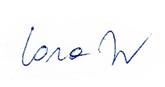 Lara W